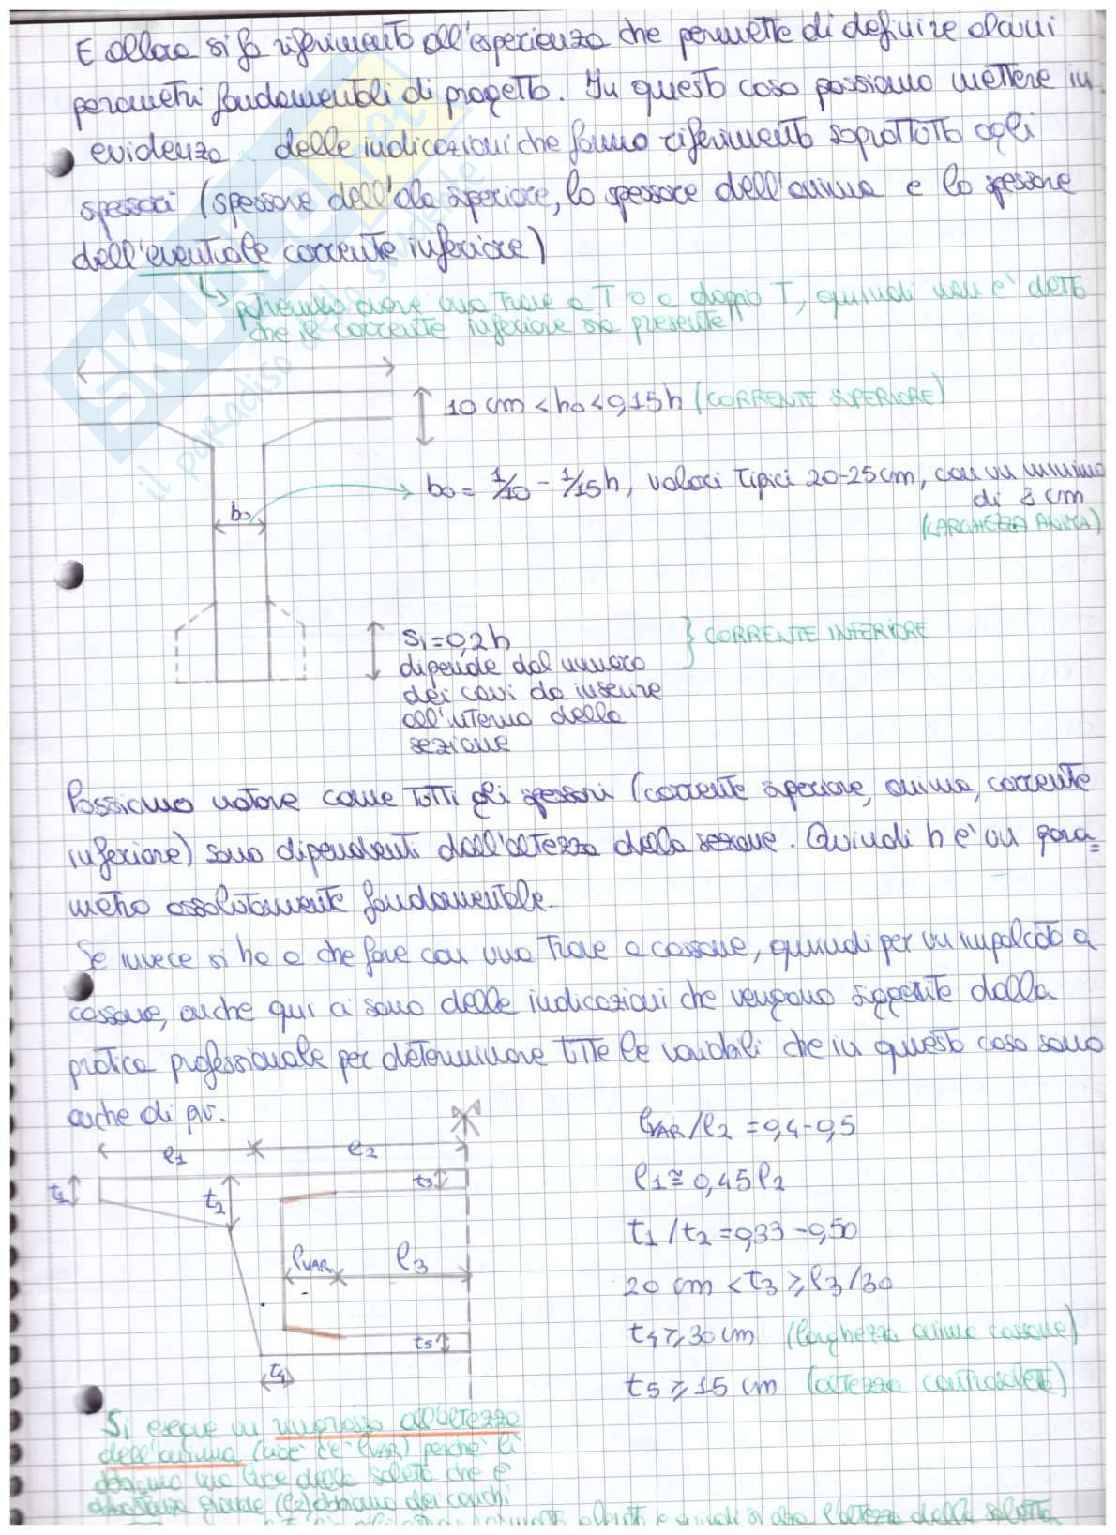 E allora si fa riferimento all'esperienza che permette di definire alcuni
parametri fondamentali di progetto. In questo caso possiamo mettere in
evidenza delle indicazioni che fanno riferimento soprattutto agli
spessori (spessore dell'ala superiore, lo spessore dell'anima e lo spessore
dell'eventuale corrente inferiore)
potremmo avere una trave a T o a doppio T, quindi non è detto
che il corrente inferiore sia presente
10 cm < h0 < 0,15h (CORRENTE SUPERIORE)
b0 = 1/10 - 1/15h, valori tipici 20-25cm, con un minimo
di 8 cm
(LARGHEZZA ANIMA)
b0
S1=0,2h
dipende dal numero
dei cavi da inserire
all'interno della
sezione
CORRENTE INFERIORE
Possiamo notare come tutti gli spessori (corrente superiore, anima, corrente
inferiore) sono dipendenti dall'altezza della sezione. Quindi h è un para=
metro assolutamente fondamentale.
Se invece si ha a che fare con una trave a cassone, quindi per un impalcato a
cassone, anche qui ci sono delle indicazioni che vengono suggerite dalla
pratica professionale per determinare tutte le variabili che in questo caso sono
anche di più.
l1
l2
t1
t2
t3
lVAR
l3
t5
t4
lVAR/l2 = 0,4-0,5
l1 ≅ 0,45 l2
t1/t2 = 0,33-0,50
20 cm < t3 ≥ l3/30
t4 ≥ 30 cm (larghezza anime cassone)
t5 ≥ 15 cm (altezza controsoletta)
Si esegue un all'altezza
dell'anima (dove c'è lVAR) perché li
abbiamo una luce della soletta che è
grande (l2) dei
l'altezza della soletta
SKUOLA.net
il paradiso dello studente